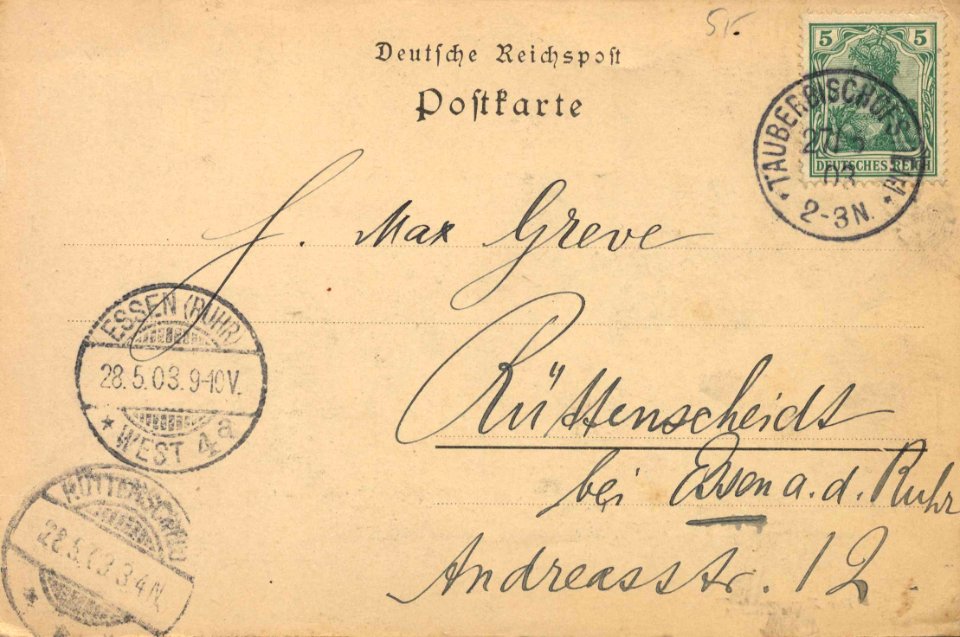 Deutsche Reichspost
Postkarte
5 5
DEUTSCHES REICH
TAUBERBISCHOFS
03
2-3N.
Max Greve
ESSEN (RUHR)
28.5.03.9-10V.
* WEST 4a
Rüttenscheidt
bei Essen a. d. Ruhr
Andreasstr. 12.
RÜTTENSCHEID
28.5.03 3-4N.